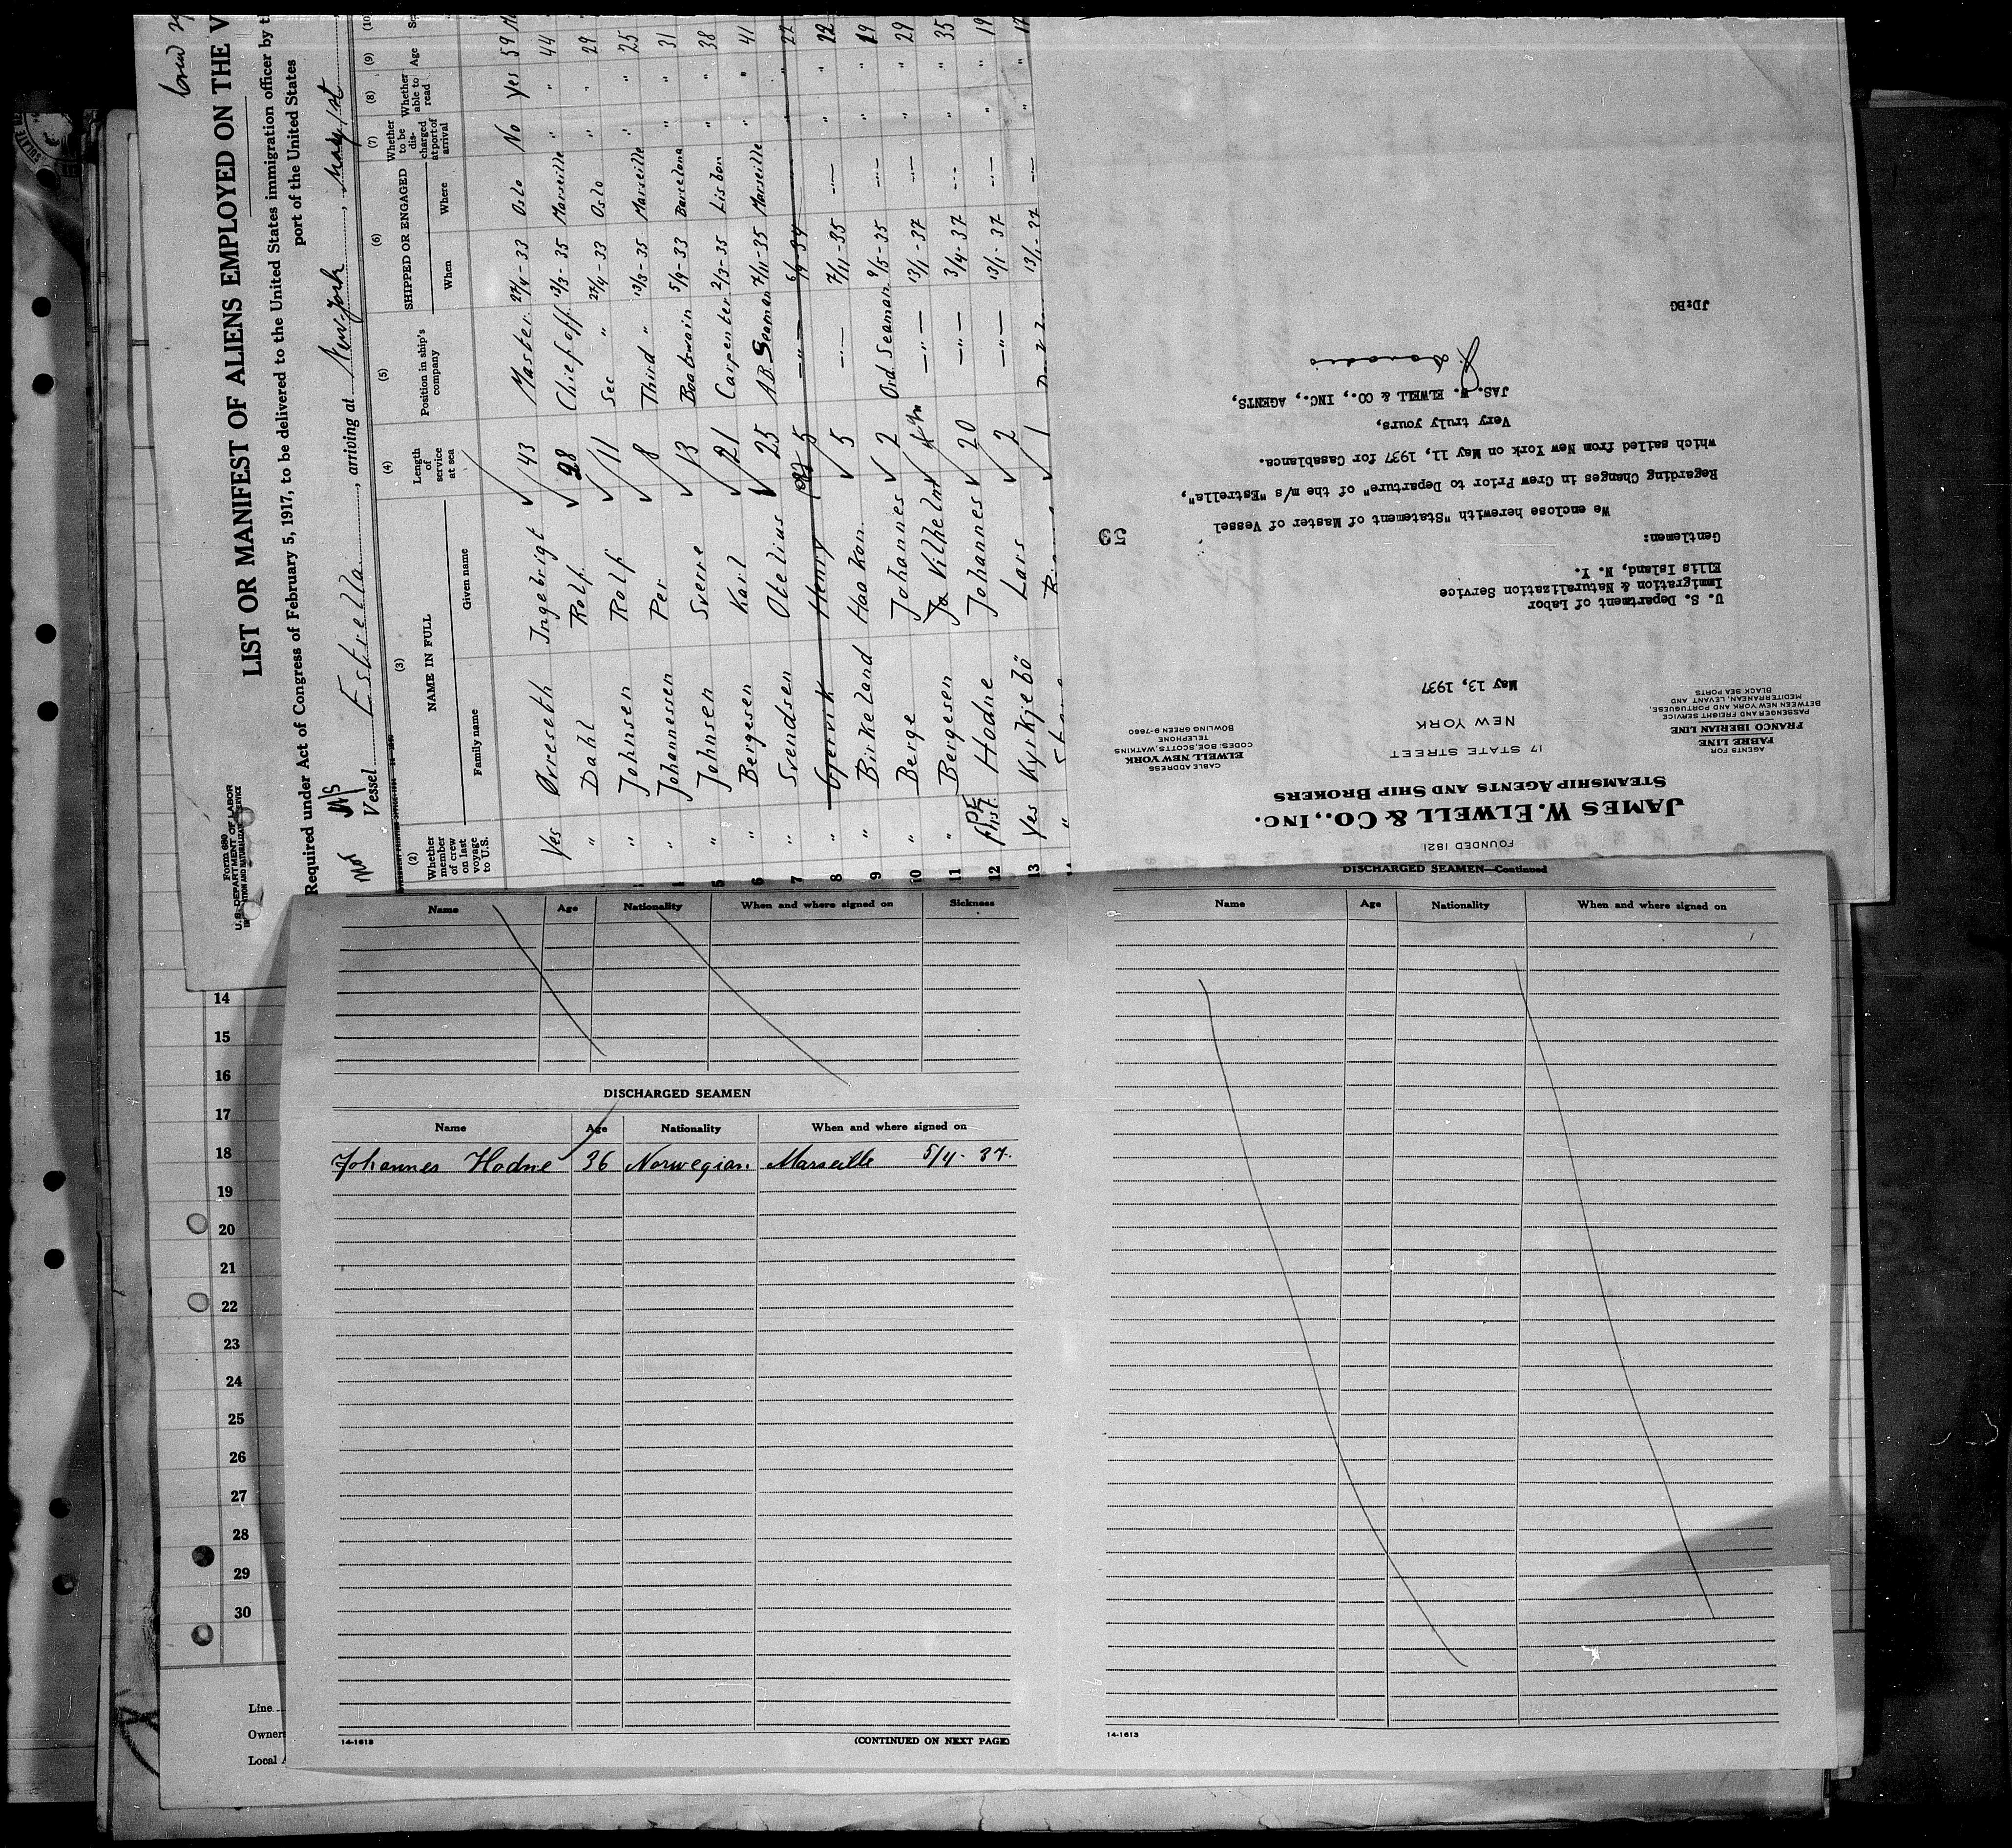 Crew
LIST OR MANIFEST OF ALIENS EMPLOYED ON THE V
Form 680
U.S. DEPARTMENT OF LABOR
Required under Act of Congress of February 5, 1917, to be delivered to the United States immigration officer by t
port of the United States
M/S
Vessel Estrella, arriving at New-York, May 1st
(2) (3) (4) (5) (6) (7) (8) (9) (10
Whether member of crew on last voyage to U.S.
NAME IN FULL
Family name Given name
Length of service at sea
Position in ship's company
SHIPPED OR ENGAGED
When Where
Whether to be discharged at port of arrival
Whether able to read
Age
Yes Ørreseth Ingebrigt 43 Master 27/4-33 Oslo No Yes 59 M
" Dahl Rolf 28 Chief off. 13/3-35 Marseille " " 44
" Johnsen Rolf 11 Sec " 27/4-33 Oslo " " 29
" Johannessen Per 8 Third " 13/3-35 Marseille " " 25
5 " Johnsen Sverre 13 Boatswain 5/9-33 Barcelona " " 31
6 " Bergesen Karl 21 Carpenter 2/3-35 Lisbon " " 38
7 " Svendsen Otelius 25 A.B. Seaman 7/11-35 Marseille " " 41
8 " Gjervik Henry 5 —"— 6/9-34 —"— " " 22
9 " Birkeland Haakon 5 —"— 7/11-35 —"— " " 22
10 " Berge Johannes 2 Ord. Seaman 9/5-35 —"— " " 19
11 " Bergesen Vilhelm —"— 13/1-37 —"— " " 29
12 First Hodne Johannes 20 —"— 3/4-37 —"— " " 35
13 Yes Kyrkjebö Lars 2 —"— 13/1-37 —"— " " 19
" 1 13/1-37 —"— " " 17
FOUNDED 1821
JAMES W. ELWELL & CO., INC.
STEAMSHIP AGENTS AND SHIP BROKERS
17 STATE STREET
NEW YORK
AGENTS FOR
FABRE LINE
FRANCO IBERIAN LINE
PASSENGER AND FREIGHT SERVICE
BETWEEN NEW YORK AND PORTUGUESE,
MEDITERRANEAN, LEVANT AND
BLACK SEA PORTS
CABLE ADDRESS
ELWELL NEW YORK
CODES: BOE, SCOTTS, WATKINS
TELEPHONE
BOWLING GREEN 9-7660
May 13, 1937
U. S. Department of Labor
Immigration & Naturalization Service
Ellis Island, N. Y.
Gentlemen:
53
We enclose herewith "Statement of Master of Vessel
Regarding Changes in Crew Prior to Departure" of the m/s "Estrella",
which sailed from New York on May 11, 1937 for Casablanca.
Very truly yours,
JAS. W. ELWELL & CO., INC., AGENTS,
JD:BG
Name Age Nationality When and where signed on Sickness
DISCHARGED SEAMEN
Name Age Nationality When and where signed on
Johannes Hodne 36 Norwegian. Marseille 5/4-37.
14-1613
(CONTINUED ON NEXT PAGE)
DISCHARGED SEAMEN—Continued
Name Age Nationality When and where signed on
14-1613
14
15
16
17
18
19
20
21
22
23
24
25
26
27
28
29
30
Line
Owners
Local